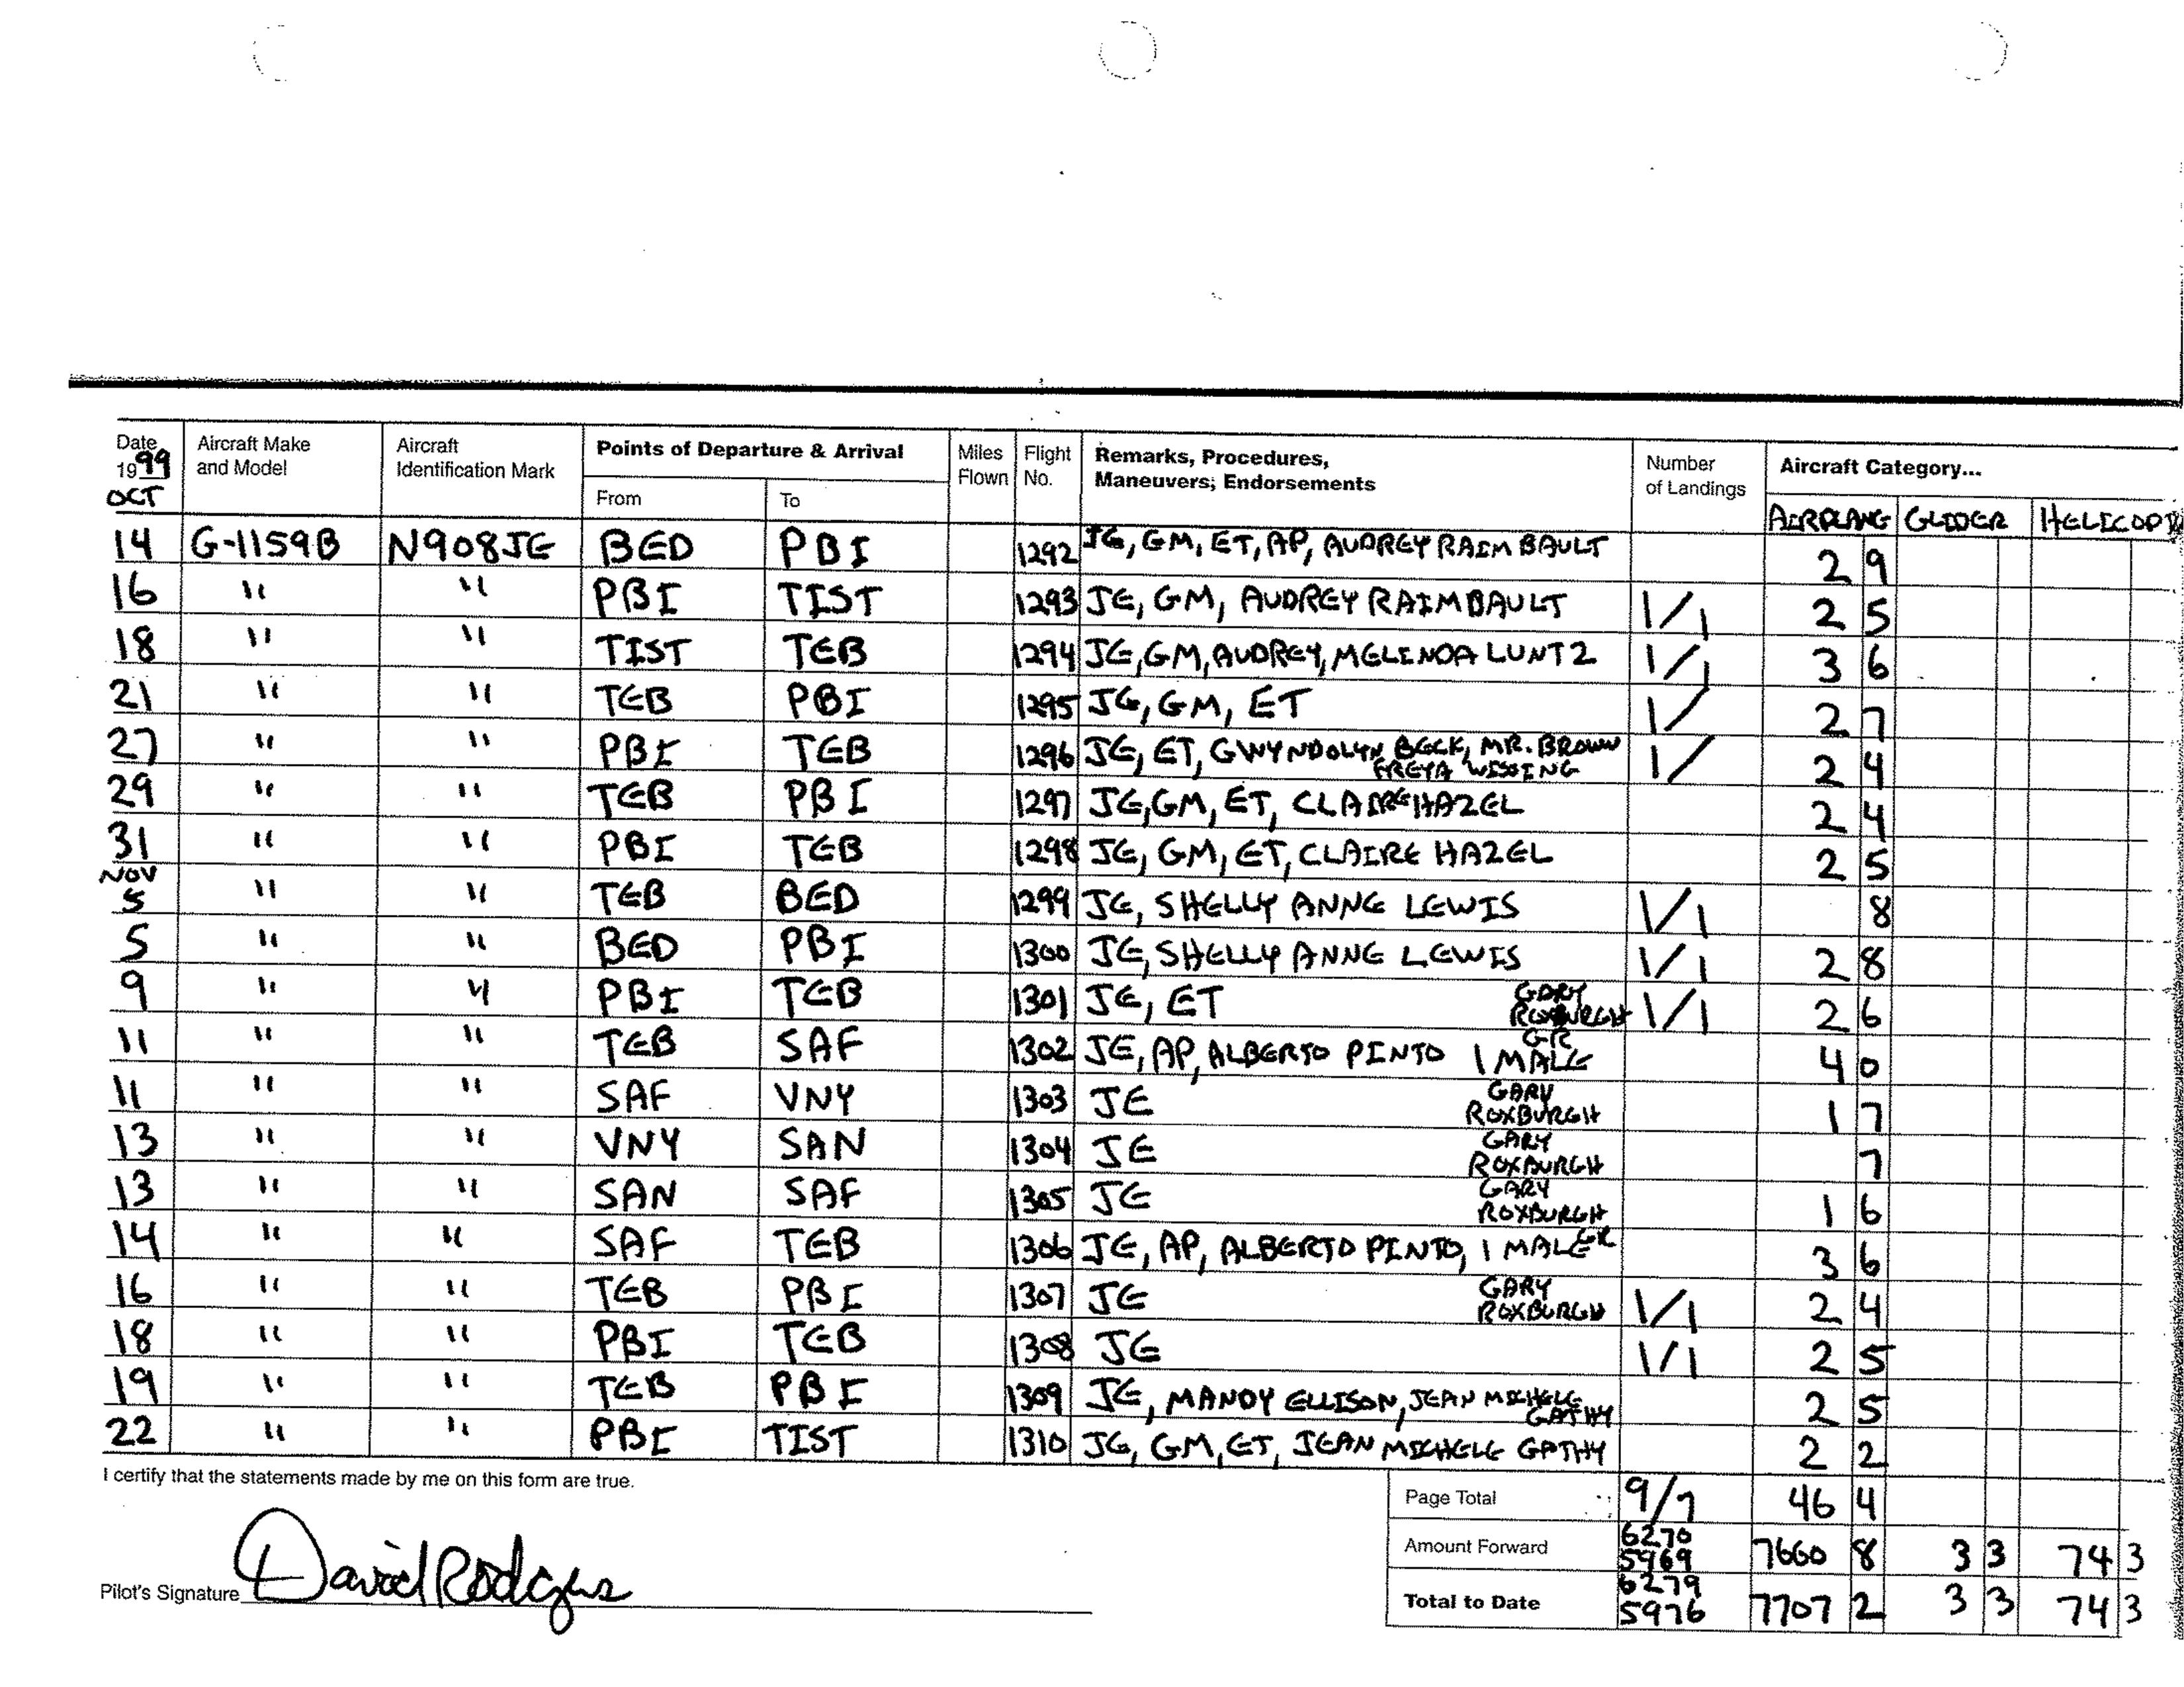 Date Aircraft Make Aircraft Points of Departure & Arrival Miles Flight Remarks, Procedures, Number Aircraft Category...
1999 and Model Identification Mark Flown No. Maneuvers; Endorsements of Landings
OCT From To AIRPLANE GLIDER HELICOPT
14 G-1159B N908JE BED PBI 1292 JE, GM, ET, AP, AUDREY RAIMBAULT 2 9
16 " " PBI TIST 1293 JE, GM, AUDREY RAIMBAULT 1/1 2 5
18 " " TIST TEB 1294 JE, GM, AUDREY, MELINDA LUNTZ 1/1 3 6
21 " " TEB PBI 1295 JE, GM, ET 1/ 2 7
27 " " PBI TEB 1296 JE, ET, GWYNDOLYN BECK, MR. BROWN 1/ 2 4
FREYA WISSING
29 " " TEB PBI 1297 JE, GM, ET, CLAIRE HAZEL 2 4
31 " " PBI TEB 1298 JE, GM, ET, CLAIRE HAZEL 2 5
NOV
5 " " TEB BED 1299 JE, SHELLY ANNE LEWIS 1/1 8
5 " " BED PBI 1300 JE, SHELLY ANNE LEWIS 1/1 2 8
9 " " PBI TEB 1301 JE, ET GARY ROXBURGH 1/1 2 6
11 " " TEB SAF 1302 JE, AP, ALBERTO PINTO 1 MALE GR 4 0
11 " " SAF VNY 1303 JE GARY ROXBURGH 1 7
13 " " VNY SAN 1304 JE GARY ROXBURGH 7
13 " " SAN SAF 1305 JE GARY ROXBURGH 1 6
14 " " SAF TEB 1306 JE, AP, ALBERTO PINTO, 1 MALE GR 3 6
16 " " TEB PBI 1307 JE GARY ROXBURGH 1/1 2 4
18 " " PBI TEB 1308 JE 1/1 2 5
19 " " TEB PBI 1309 JE, MANDY ELLISON, JEAN MICHELE GATHY 2 5
22 " " PBI TIST 1310 JE, GM, ET, JEAN MICHELE GATHY 2 2
I certify that the statements made by me on this form are true.
Page Total 9/7 46 4
Amount Forward 6270 5969 7660 8 3 3 74 3
Pilot's Signature David Rodgers
Total to Date 6279 5976 7707 2 3 3 74 3